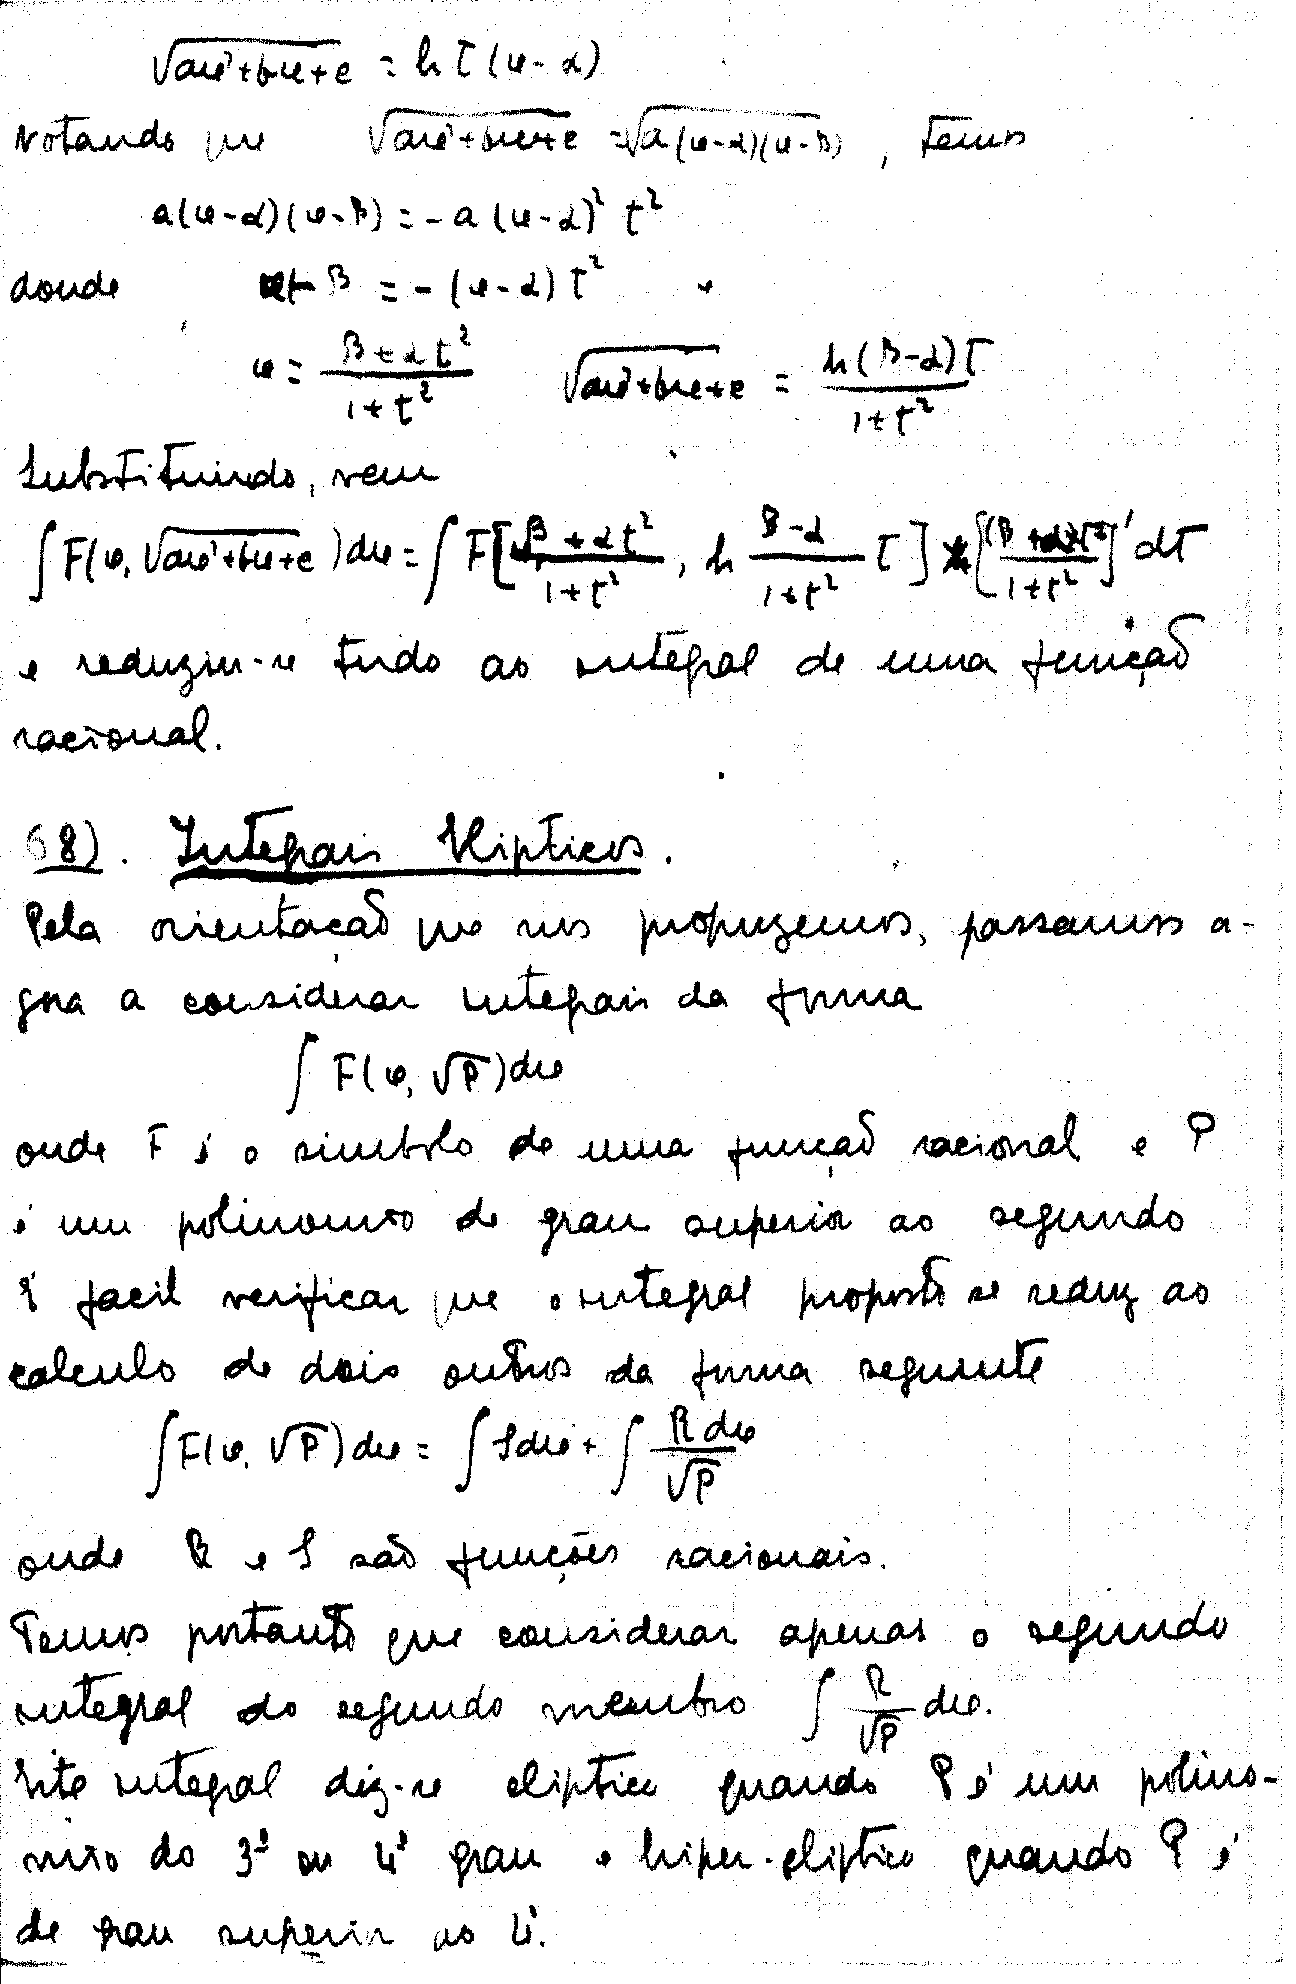 √(aφ²+bφ+c) = h t (φ-α)
Notando que √(aφ²+bφ+c) = √a(φ-α)(φ-β), temos
a(φ-α)(φ-β) = -a(φ-α)² t²
donde φ-β = -(φ-α) t² e
φ = (β+αt²)/(1+t²) √(aφ²+bφ+c) = h(β-α)t/(1+t²)
Substituindo, vem
∫F(φ, √(aφ²+bφ+c))dφ = ∫F[(β+αt²)/(1+t²), h (β-α)/(1+t²) t] [(β+αt²)/(1+t²)]' dt
e reduziu-se tudo ao integral de uma função
racional.
68). Integrais Elipticos.
Pela orientação que nos propuzemos, passamos a-
gora a considerar integrais da forma
∫F(φ, √P)dφ
onde F é o simbolo de uma função racional e P
é um polinomio de grau superior ao segundo
É facil verificar que o integral proposto se reduz ao
calculo de dois outros da forma seguinte
∫F(φ, √P)dφ = ∫Sdφ + ∫R dφ/√P
onde R e S são funções racionais.
Temos portanto que considerar apenas o segundo
integral do segundo membro ∫R/√P dφ.
Este integral diz-se eliptico quando P é um polino-
mio do 3º ou 4º grau e hiper-eliptico quando P é
de grau superior ao 4º.